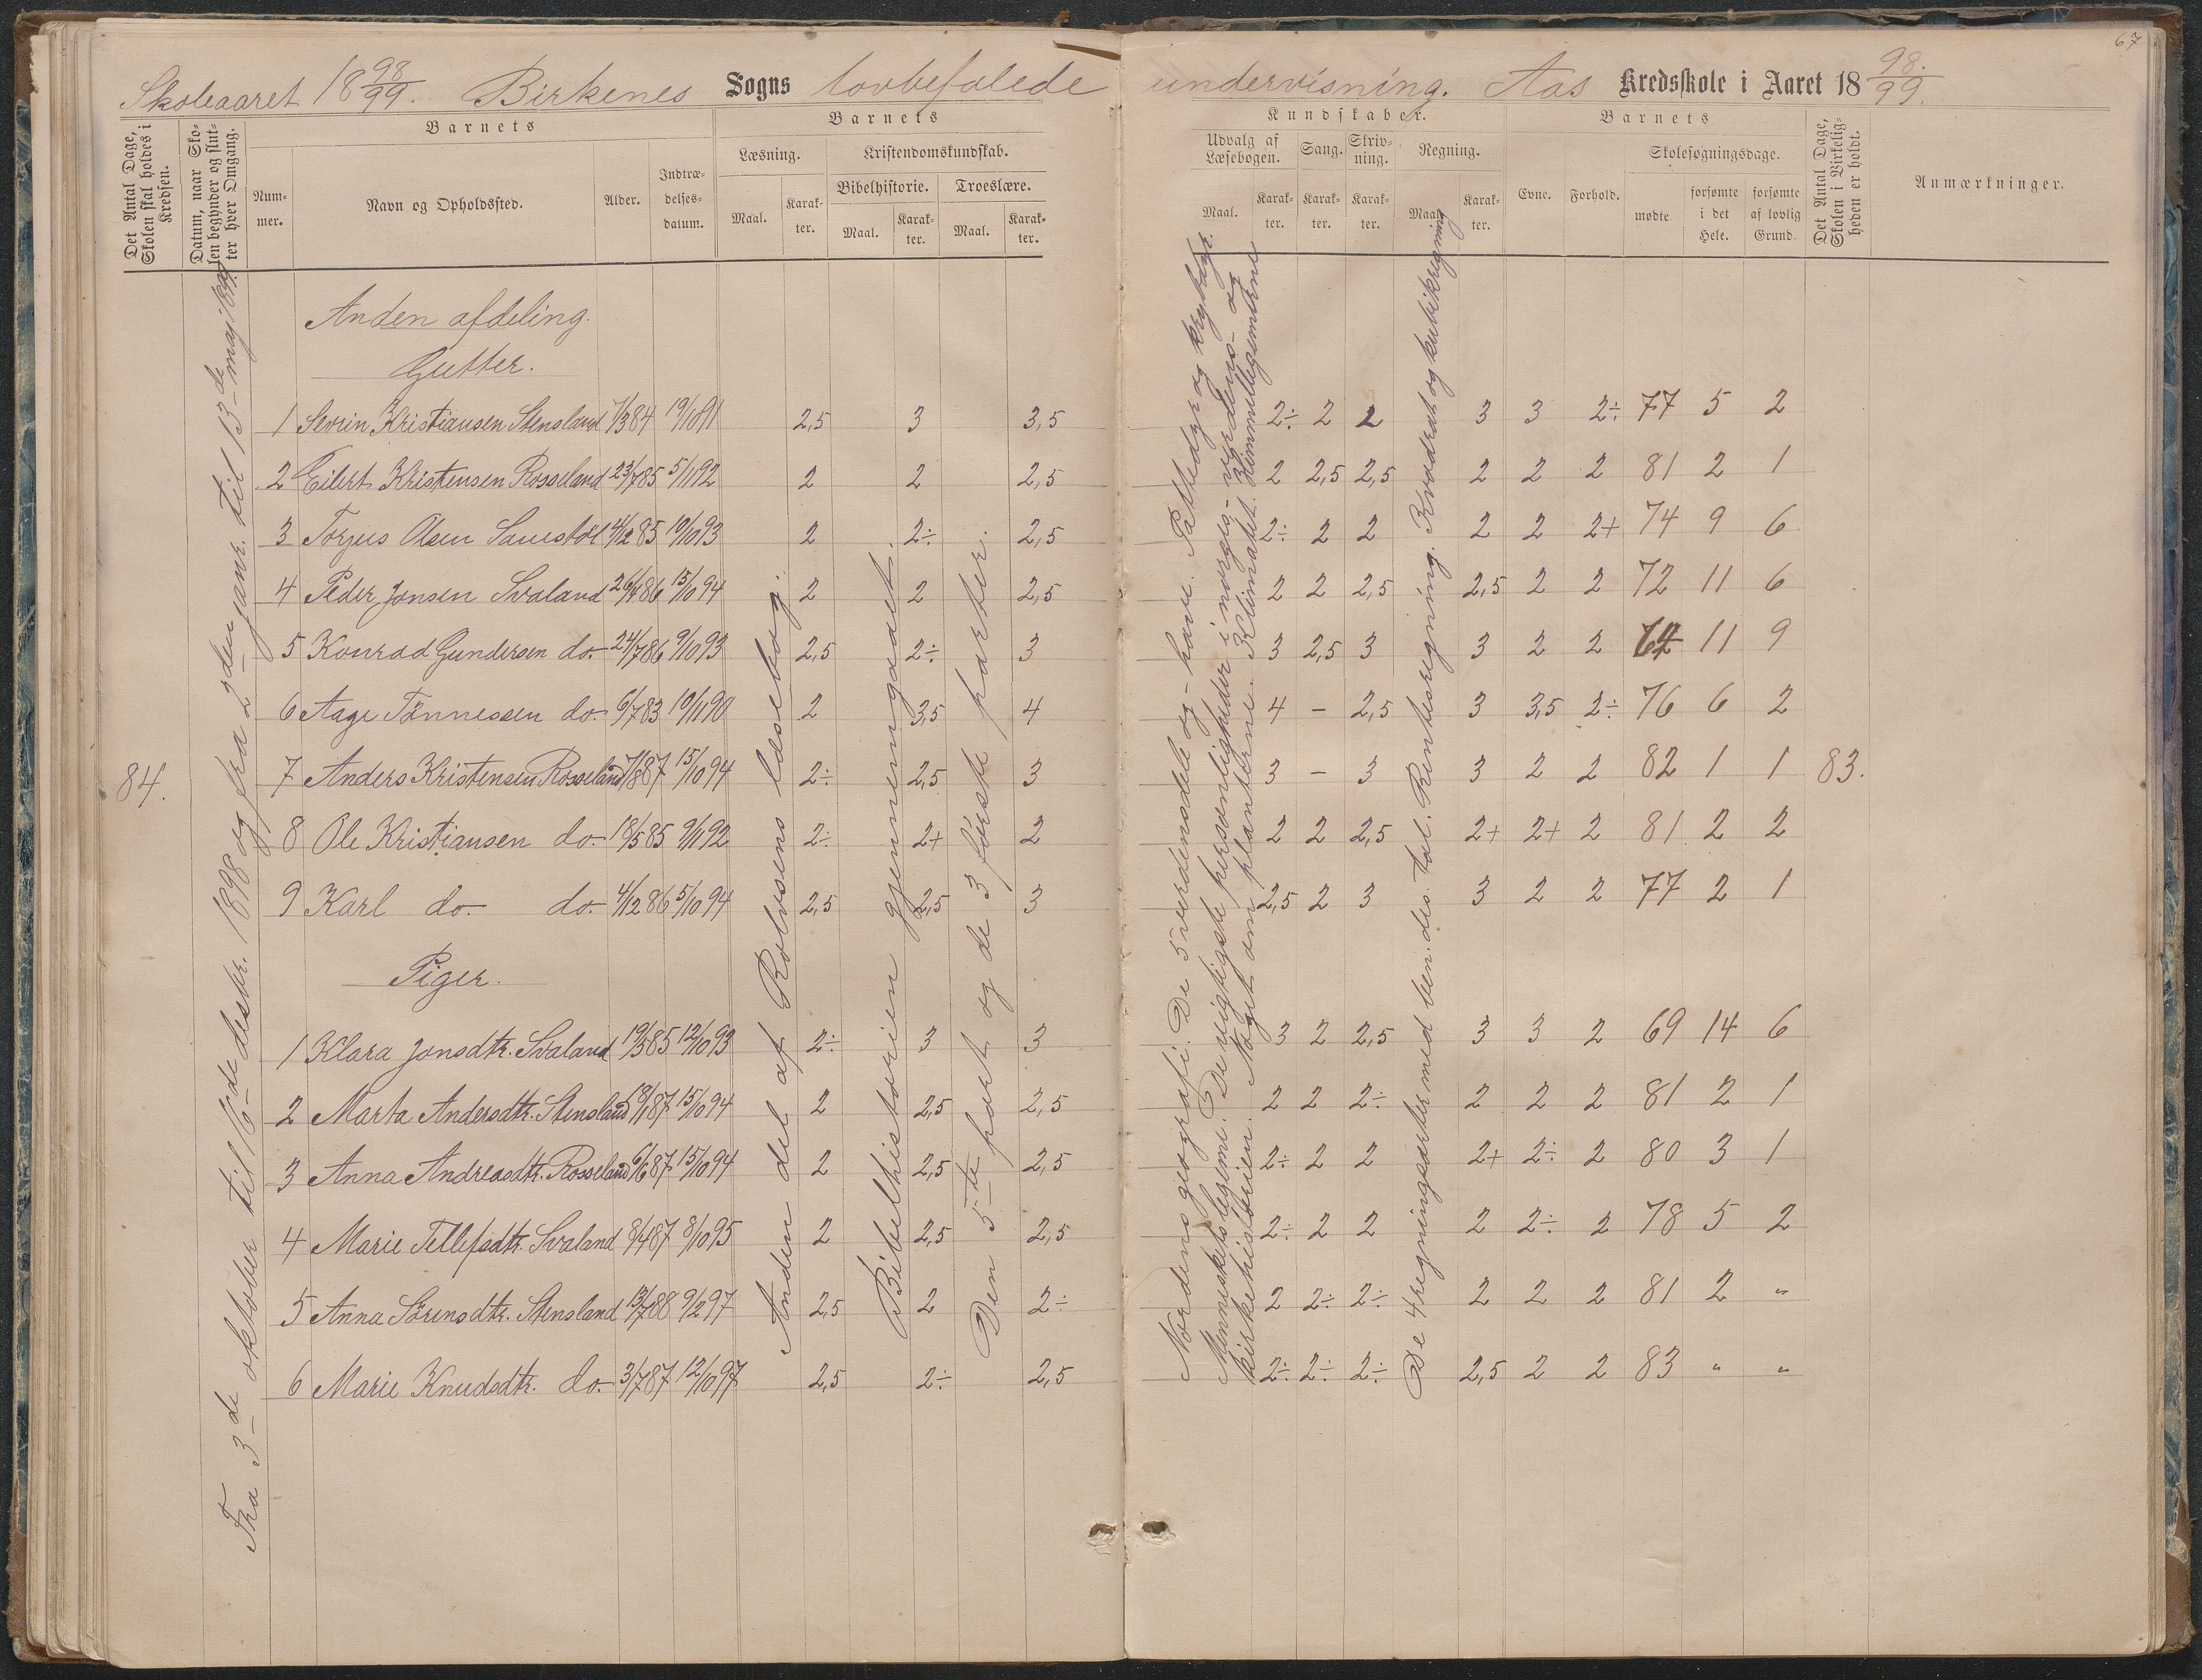 67
Skoleaaret 18 98/99. Birkenes Sogns lovbefalede undervisning. Aas Kredsskole i Aaret 18 98/99.
Det Antal Dage, Skolen skal holdes i Kredsen.
Datum, naar Skolen begynder og slutter hver Omgang.
Barnets
Nummer.
Navn og Opholdssted.
Alder.
Indtrædelsesdatum.
Barnets
Læsning.
Maal.
Karakter.
Kristendomskundskab.
Bibelhistorie.
Maal.
Karakter.
Troeslære.
Maal.
Karakter.
Kundskaber.
Udvalg af Læsebogen.
Maal.
Karakter.
Sang.
Karakter.
Skrivning.
Karakter.
Regning.
Maal.
Karakter.
Barnets
Evne.
Forhold.
Skolesøgningsdage.
mødte
forsømte i det Hele.
forsømte af lovlig Grund.
Det Antal Dage, Skolen i Virkeligheden er holdt.
Anmærkninger.
84.
Fra 3-de oktober til 16-de desbr. 1898 og fra 2-den janr. til 13-de maj 1899.
Anden del af Rolvsens læsebog.
Bibelhistorien gjennemgaaet.
Den 5-te part og de 3 første parter.
Nordens geografi. De 5 verdensdele og - have. Pattedyr og krybdyr.
Menneskets legeme. De vigtigste personligheder i norges- verdens- og
kirkehistorien. Noget om planterne. Klimatet. Himmellegemerne
De 4 regningsarter med ben. des. tal. Rentesregning. Kvadrat og kubikregning
Anden afdeling.
Gutter.
1 Sevrin Kristiansen Stensland 7/3 84 19/10 91 2,5 3 3,5 2÷ 2 2 3 3 2÷ 77 5 2
2 Eilert Kristensen Rosseland 23/7 85 5/11 92 2 2 2,5 2 2,5 2,5 2 2 2 81 2 1
3 Torjus Olsen Samstøl 4/12 85 10/10 93 2 2÷ 2,5 2÷ 2 2 2 2 2+ 74 9 6
4 Peder Jonsen Svaland 26/4 86 15/10 94 2 2 2,5 2 2 2,5 2,5 2 2 72 11 6
5 Konrad Gundersen do. 24/7 86 9/10 93 2,5 2÷ 3 3 2,5 3 3 2 2 11 9
6 Aage Tønnessen do. 6/7 83 10/11 90 2 3,5 4 4 - 2,5 3 3,5 2÷ 76 6 2
7 Anders Kristensen Rosseland 7/8 87 15/10 94 2÷ 2,5 3 3 - 3 3 2 2 82 1 1 83.
8 Ole Kristiansen do. 18/5 85 9/11 92 2÷ 2+ 2 2 2 2,5 2+ 2+ 2 81 2 2
9 Karl do. do. 4/12 86 5/10 94 2,5 2,5 3 2,5 2 3 3 2 2 77 2 1
Piger.
1 Klara Jonsdtr. Svaland 19/3 85 12/10 93 2÷ 3 3 3 2 2,5 3 3 2 69 14 6
2 Marta Andersdtr. Stensland 18/1 87 15/10 94 2 2,5 2,5 2 2 2÷ 2 2 2 81 2 1
3 Anna Andreasdtr. Rosseland 6/6 87 15/10 94 2 2,5 2,5 2÷ 2 2 2+ 2÷ 2 80 3 1
4 Marie Tellefsdtr. Svaland 8/4 87 8/10 95 2 2,5 2,5 2÷ 2 2 2 2÷ 2 78 5 2
5 Anna Sørensdtr. Stensland 13/7 88 9/2 97 2,5 2 2÷ 2 2÷ 2÷ 2 2 2 81 2 "
6 Marie Knudsdtr. do. 3/7 87 12/10 97 2,5 2÷ 2,5 2÷ 2÷ 2÷ 2,5 2 2 83 " "